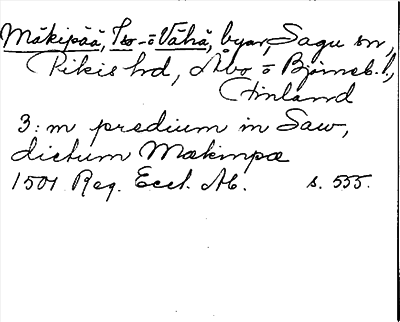 Mäkipää, Iso- o Vähä, byar, Sagu sn,
Pikis hd, Åbo o Björneb. l.,
Finland
3: m predium in Saw,
dictum Mækinpæ
1501 Reg. Eccl. Ab. s. 555.